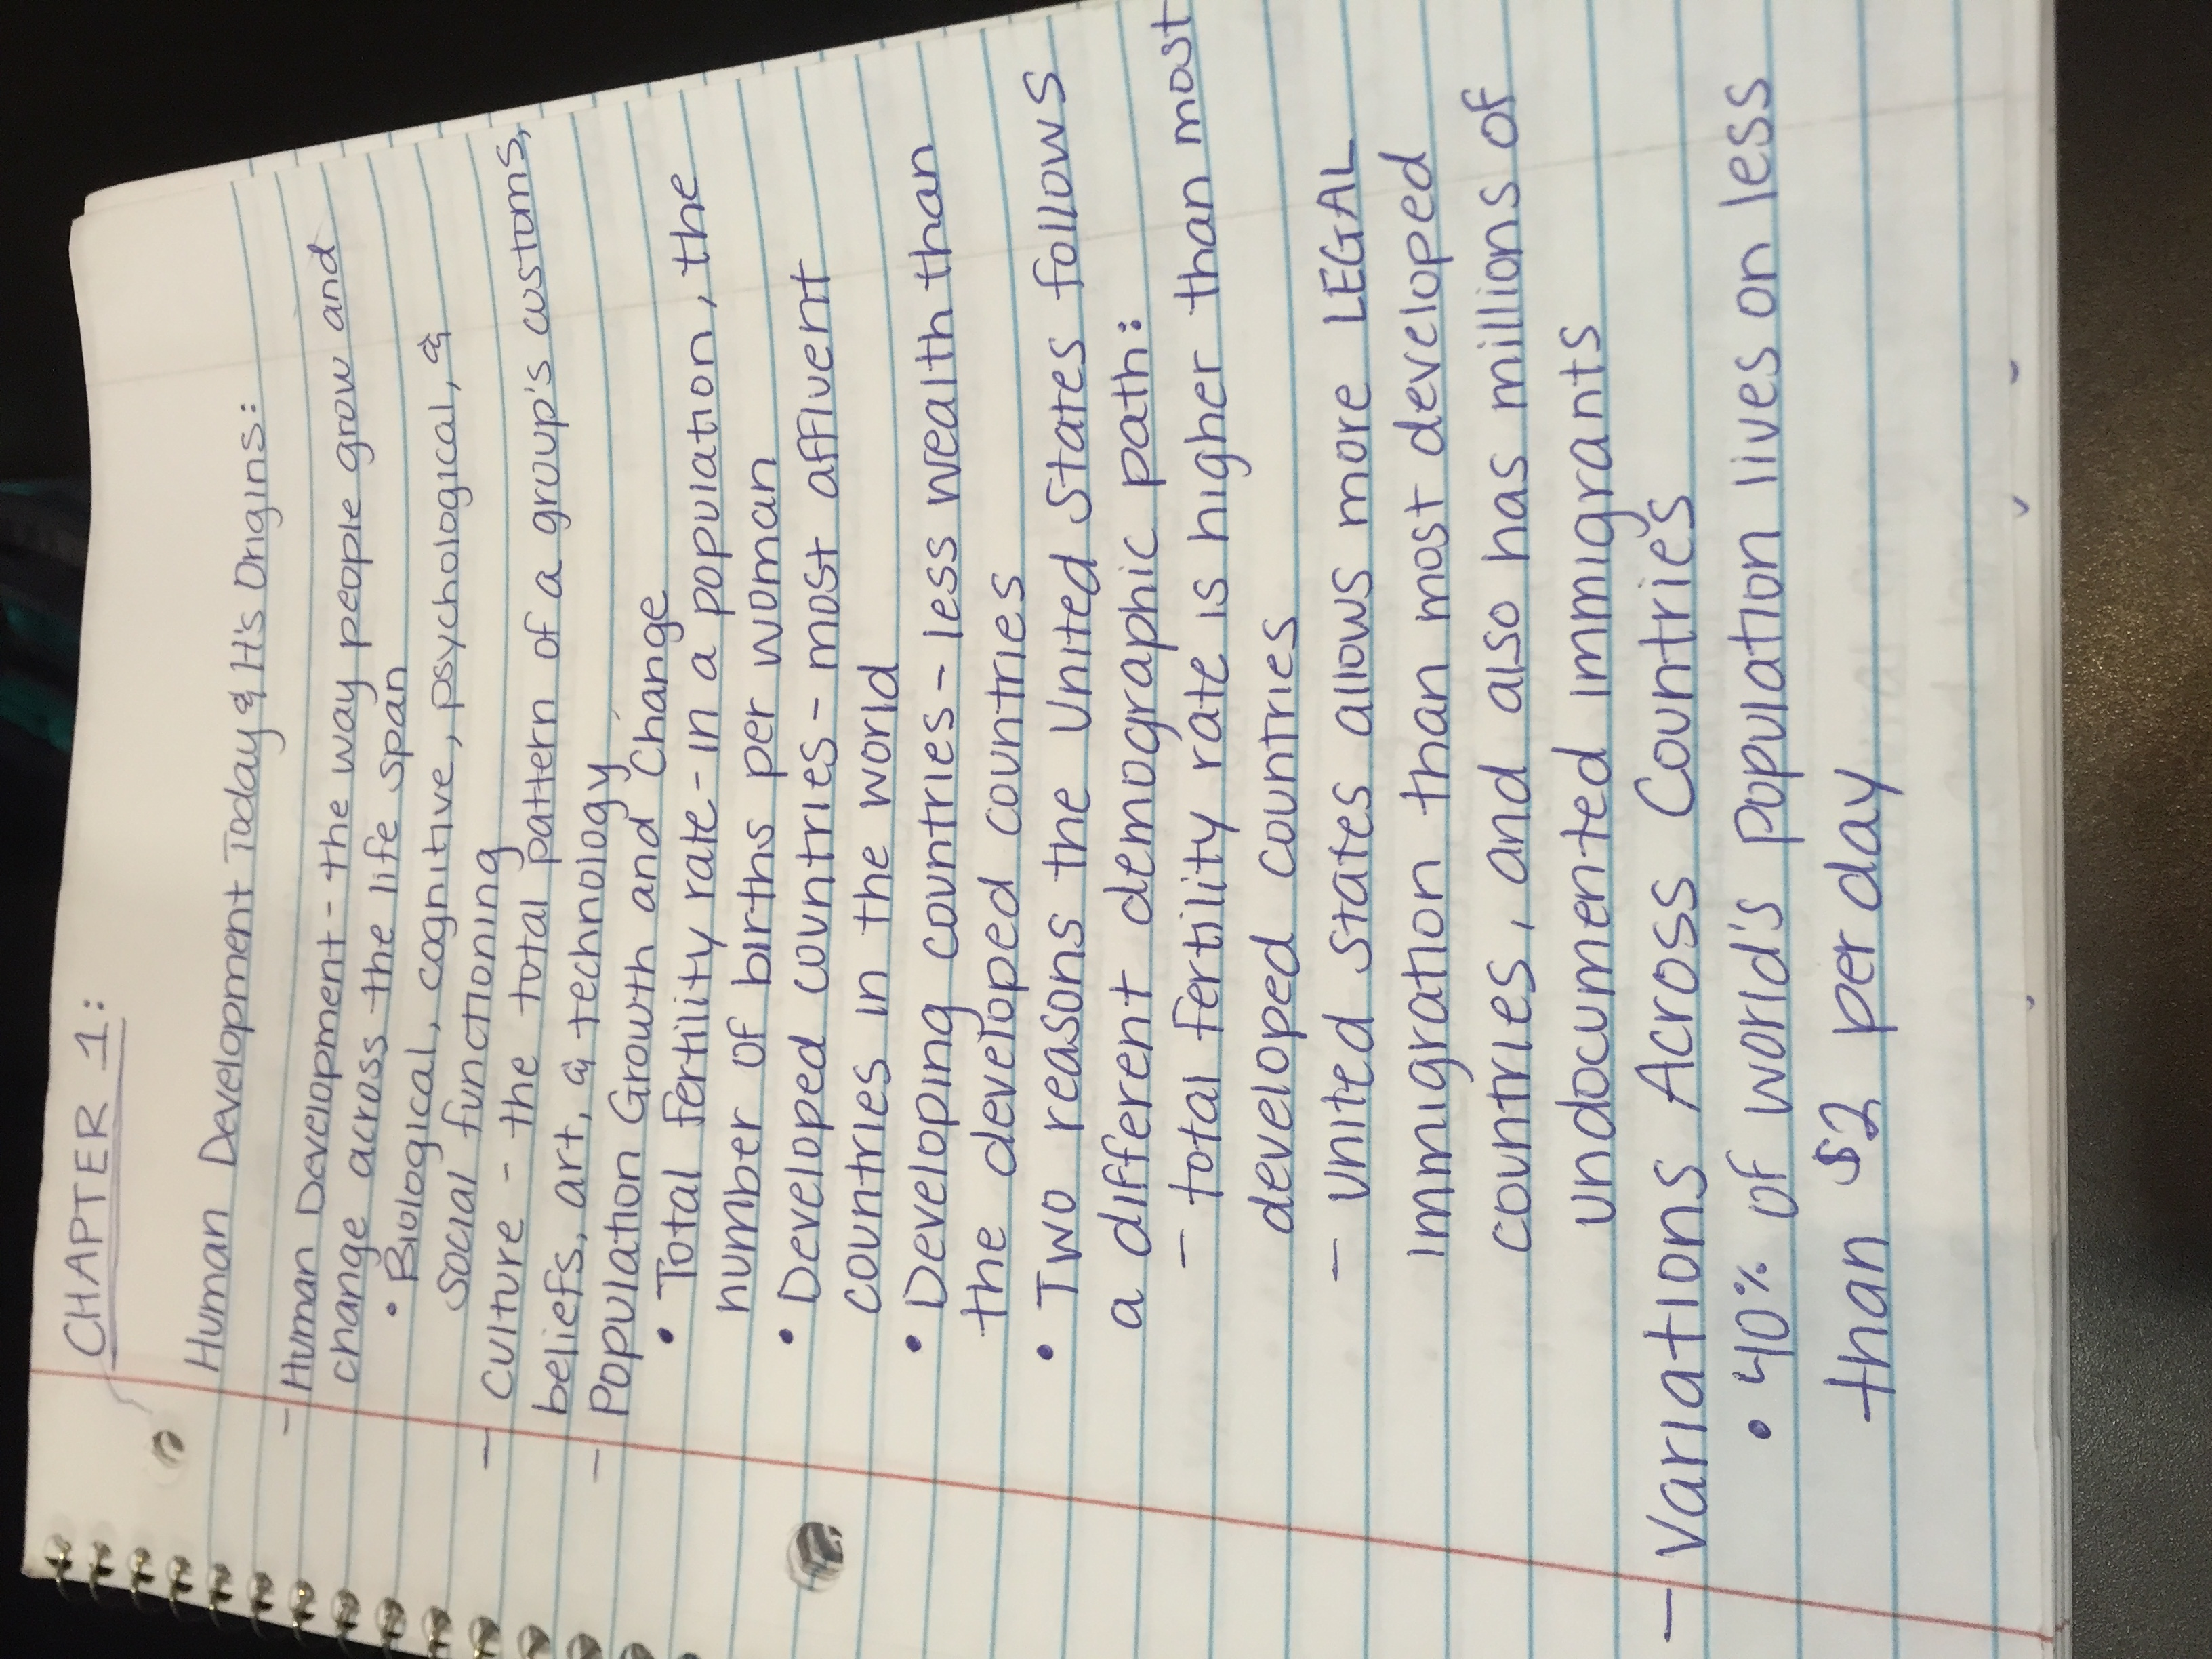 CHAPTER 1:
Human Development Today & It's Origins:
- Human Development - the way people grow and
change across the life span
• Biological, cognitive, psychological, &
social functioning
- Culture - the total pattern of a group's customs,
beliefs, art, & technology
- Population Growth and Change
• Total fertility rate - in a population, the
number of births per woman
• Developed countries - most affluent
countries in the world
• Developing countries - less wealth than
the developed countries
• Two reasons the United States follows
a different demographic path:
- total fertility rate is higher than most
developed countries
- United States allows more LEGAL
immigration than most developed
countries, and also has millions of
undocumented immigrants
- Variations Across Countries
• 40% of world's population lives on less
than $2 per day